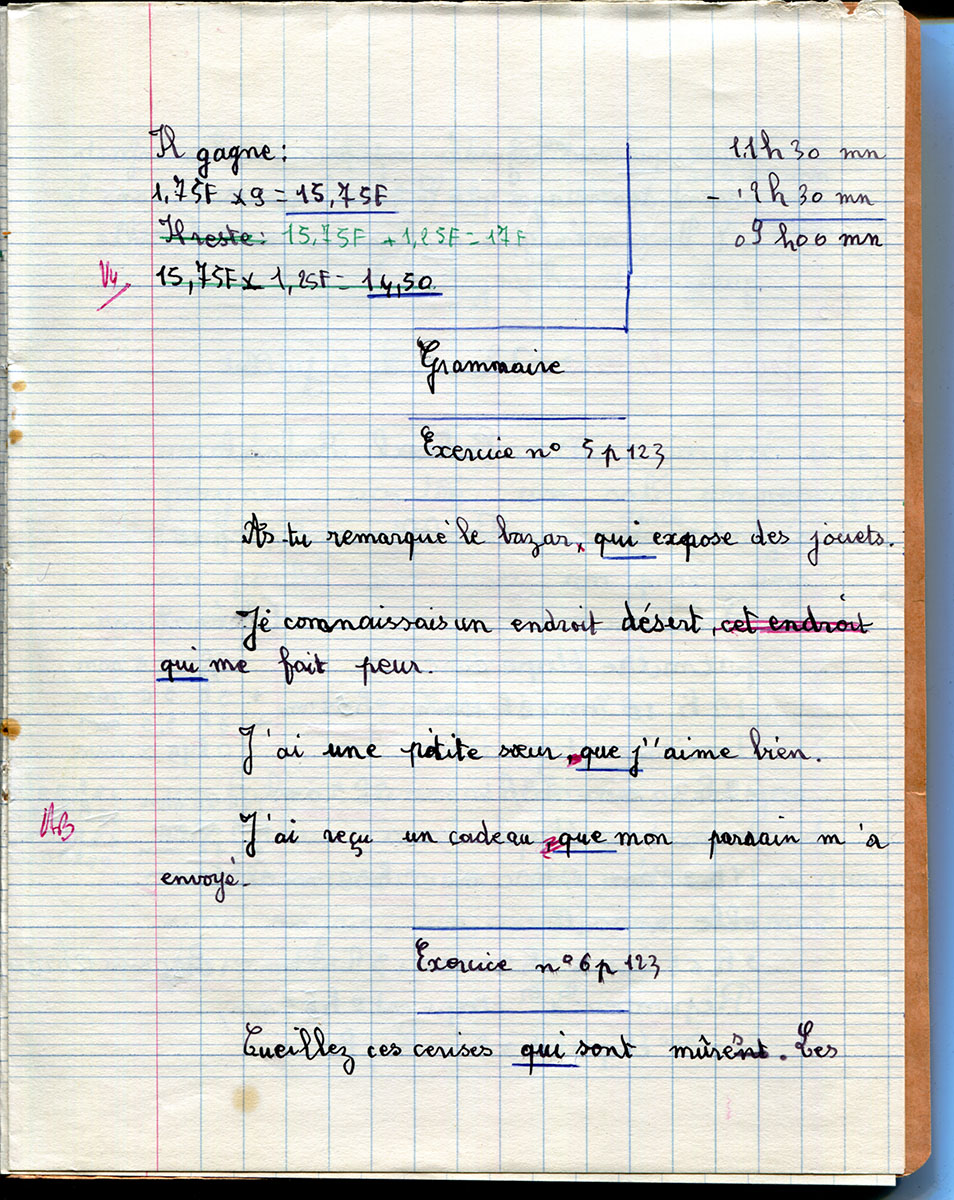 Il gagne :
1,75F x 9 = 15,75F
Il reste : 15,75F + 1,25F = 17F
15,75F x 1,25F = 14,50
11h 30 mn
- 9 h 30 mn
09 h00 mn
Grammaire
Exercice n° 5 p 123
As-tu remarqué le bazar, qui expose des jouets.
Je connaissais un endroit désert, cet endroit
qui me fait peur.
J'ai une petite sœur, que j'aime bien.
AB
J'ai reçu un cadeau, que mon parrain m'a
envoyé.
Exercice n° 6 p 123
Cueillez ces cerises qui sont mûres. Les